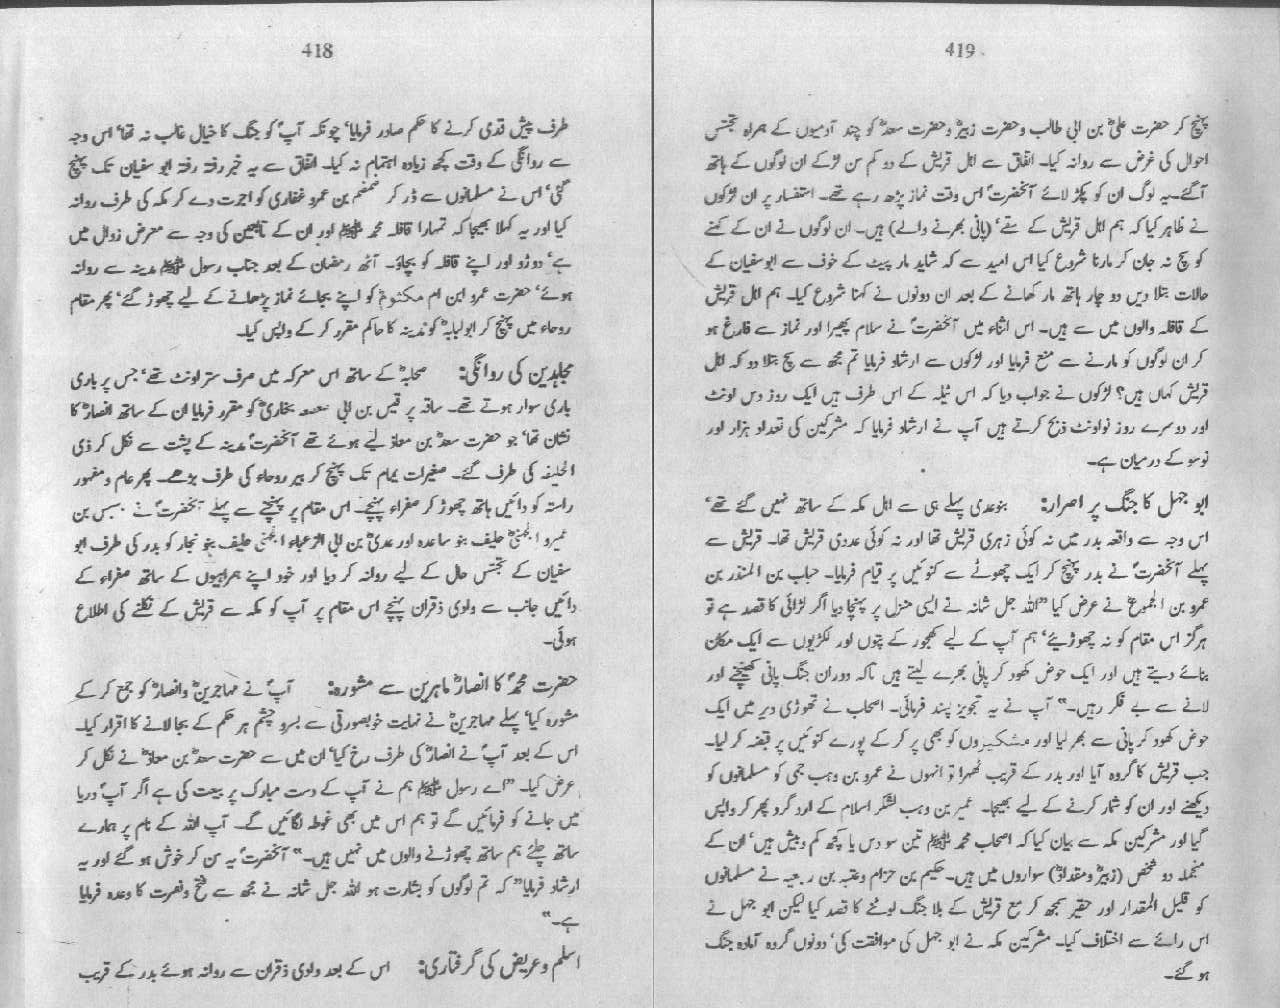 418
طرف پیش قدمی کرنے کا حکم صادر فرمایا‘ چونکہ آپؐ کو جنگ کا خیال غالب نہ تھا‘ اس وجہ
سے روانگی کے وقت کچھ زیادہ اہتمام نہ کیا۔ اتفاق سے یہ خبر رفتہ رفتہ ابو سفیان تک پہنچ
گئی‘ اس نے مسلمانوں سے ڈر کر ضمضم بن عمرو غفاری کو اجرت دے کر مکہ کی طرف روانہ
کیا اور یہ کہلا بھیجا کہ تمہارا قافلہ محمد ﷺ اور ان کے تابعین کی وجہ سے معرض زوال میں
ہے‘ دوڑو اور اپنے قافلہ کو بچاؤ۔ آٹھ رمضان کے بعد جناب رسول ﷺ مدینہ سے روانہ
ہوئے‘ حضرت عمرو ابن ام مکتومؓ کو اپنے بجائے نماز پڑھانے کے لیے چھوڑ گئے‘ پھر مقام
روحاء میں پہنچ کر ابولبابہؓ کو مدینہ کا حاکم مقرر کر کے واپس کیا۔
مجاہدین کی روانگی: صحابہؓ کے ساتھ اس معرکہ میں صرف ستر اونٹ تھے‘ جس پر باری
باری سوار ہوتے تھے۔ ساقہ پر قیس بن ابی صعصعہ بخاریؓ کو مقرر فرمایا ان کے ساتھ انصارؓ کا
نشان تھا‘ جو حضرت سعدؓ بن معاذ لیے ہوئے تھے آنحضرتؐ مدینہ کے پشت سے نکل کر ذی
الحلیفہ کی طرف گئے۔ صغیرات یمام تک پہنچ کر بیر روحاء کی طرف بڑھے۔ پھر عام و مغمور
راستہ کو دائیں ہاتھ چھوڑ کر صفراء پہنچے۔ اس مقام پر پہنچنے سے پہلے آنحضرتؐ نے بسبس بن
عمیرو الجہنیؓ حلیف بنو ساعدہ اور عدیؓ بن ابی الزعباء الجہنی حلیف بنو نجار کو بدر کی طرف ابو
سفیان کے تجسس حال کے لیے روانہ کر دیا اور خود اپنے ہمراہیوں کے ساتھ صفراء کے
دائیں جانب سے وادی ذقران پہنچے اس مقام پر آپ کو مکہ سے قریش کے نکلنے کی اطلاع
ہوئی۔
حضرت محمدؐ کا انصارؓ ماہرین سے مشورہ: آپؐ نے مہاجرینؓ و انصارؓ کو جمع کر کے
مشورہ کیا‘ پہلے مہاجرینؓ نے نہایت خوبصورتی سے بسرو چشم ہر حکم کے بجا لانے کا اقرار کیا۔
اس کے بعد آپؐ نے انصارؓ کی طرف رخ کیا‘ ان میں سے حضرت سعدؓ بن معاذؓ نے نکل کر
عرض کیا۔ ”اے رسول ﷺ ہم نے آپ کے دست مبارک پر بیعت کی ہے اگر آپؐ دریا
میں جانے کو فرمائیں گے تو ہم اس میں بھی غوطہ لگائیں گے۔ آپ اللہ کے نام پر ہمارے
ساتھ چلئے ہم ساتھ چھوڑنے والوں میں نہیں ہیں۔“ آنحضرتؐ یہ سن کر خوش ہو گئے اور یہ
ارشاد فرمایا ”کہ تم لوگوں کو بشارت ہو اللہ جل شانہ نے مجھ سے فتح و نصرت کا وعدہ فرمایا
ہے۔“
اسلم و عریض کی گرفتاری: اس کے بعد وادی ذقران سے روانہ ہوئے بدر کے قریب
419
پہنچ کر حضرت علیؓ بن ابی طالب و حضرت زبیرؓ و حضرت سعدؓ کو چند آدمیوں کے ہمراہ تجسس
احوال کی غرض سے روانہ کیا۔ اتفاق سے اہل قریش کے دو کم سن لڑکے ان لوگوں کے ہاتھ
آ گئے۔ یہ لوگ ان کو پکڑ لائے آنحضرتؐ اس وقت نماز پڑھ رہے تھے۔ استفسار پر ان لڑکوں
نے ظاہر کیا کہ ہم اہل قریش کے سقے‘ (پانی بھرنے والے) ہیں۔ ان لوگوں نے ان کے کہنے
کو سچ نہ جان کر مارنا شروع کیا اس امید سے کہ شاید مار پیٹ کے خوف سے ابوسفیان کے
حالات بتلا دیں دو چار ہاتھ مار کھانے کے بعد ان دونوں نے کہنا شروع کیا۔ ہم اہل قریش
کے قافلہ والوں میں سے ہیں۔ اس اثناء میں آنحضرتؐ نے سلام پھیرا اور نماز سے فارغ ہو
کر ان لوگوں کو مارنے سے منع فرمایا اور لڑکوں سے ارشاد فرمایا تم مجھ سے سچ بتلا دو کہ اہل
قریش کہاں ہیں؟ لڑکوں نے جواب دیا کہ اس ٹیلہ کے اس طرف ہیں ایک روز دس اونٹ
اور دوسرے روز نو اونٹ ذبح کرتے ہیں آپ نے ارشاد فرمایا کہ مشرکین کی تعداد ہزار اور
نوسو کے درمیان ہے۔
ابو جہل کا جنگ پر اصرار: بنوعدی پہلے ہی سے اہل مکہ کے ساتھ نہیں گئے تھے‘
اس وجہ سے واقعہ بدر میں نہ کوئی زہری قریش تھا اور نہ کوئی عددی قریش تھا۔ قریش سے
پہلے آنحضرتؐ نے بدر پہنچ کر ایک چھوٹے سے کنوئیں پر قیام فرمایا۔ حباب بن المنذر بن
عمرو بن الجموعؓ نے عرض کیا ”اللہ جل شانہ نے ایسی منزل پر پہنچا دیا اگر لڑائی کا قصد ہے تو
ہرگز اس مقام کو نہ چھوڑیئے‘ ہم آپ کے لیے کھجور کے پتوں اور لکڑیوں سے ایک مکان
بنائے دیتے ہیں اور ایک حوض کھود کر پانی بھرے لیتے ہیں تاکہ دوران جنگ پانی کھینچنے اور
لانے سے بے فکر رہیں۔“ آپ نے یہ تجویز پسند فرمائی۔ اصحاب نے تھوڑی دیر میں ایک
حوض کھود کر پانی سے بھر لیا اور مشکیزوں کو بھی پر کر کے پورے کنوئیں پر قبضہ کر لیا۔
جب قریش کا گروہ آیا اور بدر کے قریب ٹھہرا تو انہوں نے عمرو بن وہب جمی کو مسلمانوں کو
دیکھنے اور ان کو شمار کرنے کے لیے بھیجا۔ عمیر بن وہب لشکر اسلام کے ارد گرد پھر کر واپس
گیا اور مشرکین مکہ سے بیان کیا کہ اصحاب محمد ﷺ تین سو دس یا کچھ کم و بیش ہیں‘ ان کے
منجملہ دو شخص (زبیرؓ و مقدادؓ) سواروں میں ہیں۔ حکیم بن حزام و عتبہ بن ربیعہ نے مسلمانوں
کو قلیل المقدار اور حقیر سمجھ کر مع قریش کے بلا جنگ لوٹنے کا قصد کیا لیکن ابو جہل نے
اس رائے سے اختلاف کیا۔ مشرکین مکہ نے ابو جہل کی موافقت کی‘ دونوں گروہ آمادہ جنگ
ہو گئے۔